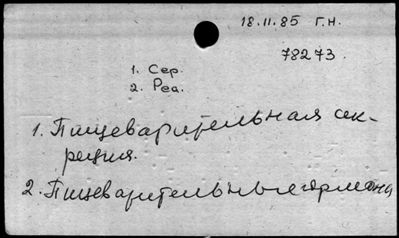 18.11.85 Г.Н.
78273.
1. Сер.
2. Реа.
1. Пищеварительная сек-
реция.
2. Пищеварительные гормоны